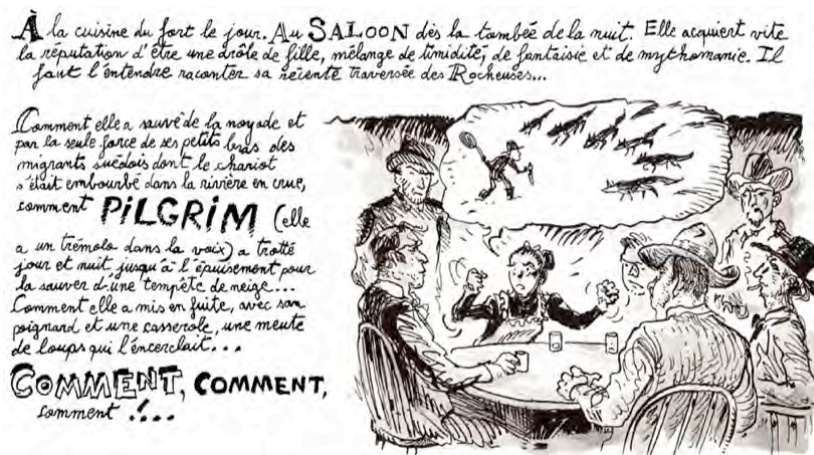 À la cuisine du fort le jour. Au SALOON dès la tombée de la nuit. Elle acquiert vite
la réputation d'être une drôle de fille, mélange de timidité, de fantaisie et de mythomanie. Il
faut l'entendre raconter sa récente traversée des Rocheuses...
Comment elle a sauvé de la noyade et
par la seule force de ses petits bras des
migrants suédois dont le chariot
s'était embourbé dans la rivière en crue,
comment PILGRIM (elle
a un trémolo dans la voix) a trotté
jour et nuit jusqu'à l'épuisement pour
la sauver d'une tempête de neige...
Comment elle a mis en fuite, avec son
poignard et une casserole, une meute
de loups qui l'encerclait...
COMMENT, COMMENT,
comment !...